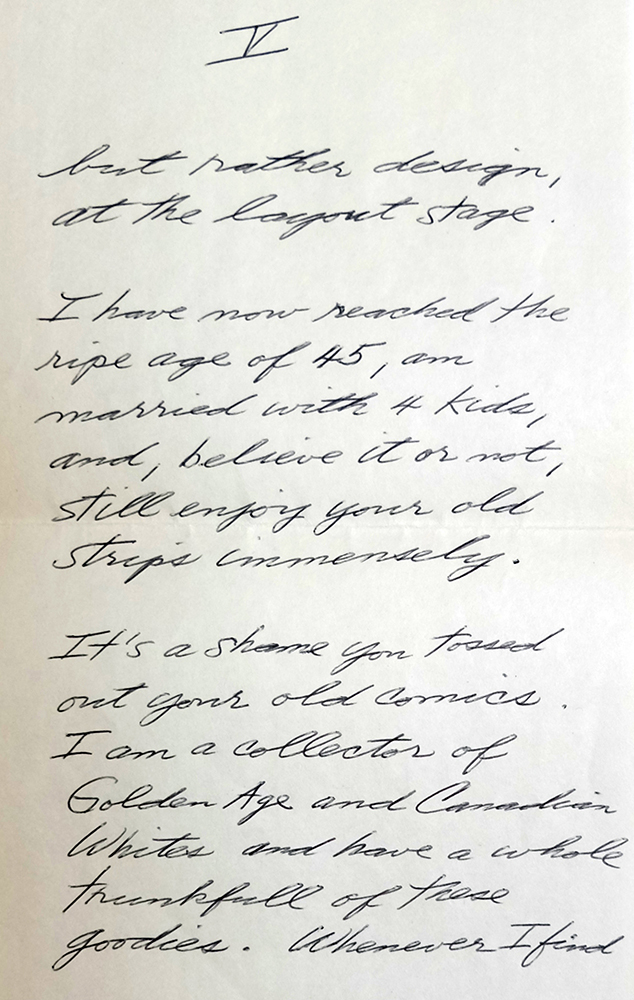 V
but rather design,
at the layout stage.
I have now reached the
ripe age of 45, am
married with 4 kids,
and, believe it or not,
still enjoy your old
strips immensely.
It's a shame you tossed
out your old comics.
I am a collector of
Golden Age and Canadian
Whites and have a whole
trunkfull of these
goodies. Whenever I find